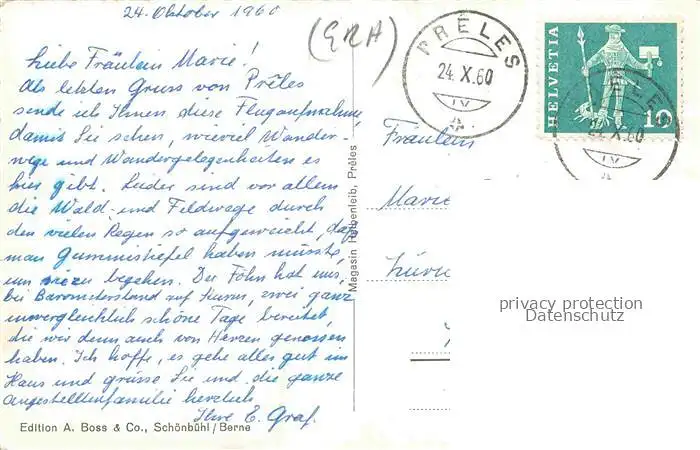 24. Oktober 1960
Liebe Fräulein Marie!
Als letzten Gruss von Prêles
sende ich Ihnen diese Flugaufnahme
damit Sie sehen, wieviel Wander-
wege und Wandergelegenheiten es
hier gibt. Leider sind vor allem
die Wald- und Feldwege durch
den vielen Regen so aufgeweicht, dass
man Gummistiefel haben müsste,
um sie zu begehen. Der Föhn hat uns,
bei Barometerstand auf Sturm, zwei ganz
unvergleichlich schöne Tage bereitet,
die wir denn auch von Herzen genossen
haben. Ich hoffe, es gehe alles gut im
Haus und grüsse Sie und die ganze
Angestelltenfamilie herzlich
Ihre E. Graf.
Edition A. Boss & Co., Schönbühl/Berne
Magasin Halbenleib, Prêles
PRÊLES
24.X.60
HELVETIA
10
24.X.60
Fräulein
Marie
privacy protection
Datenschutz